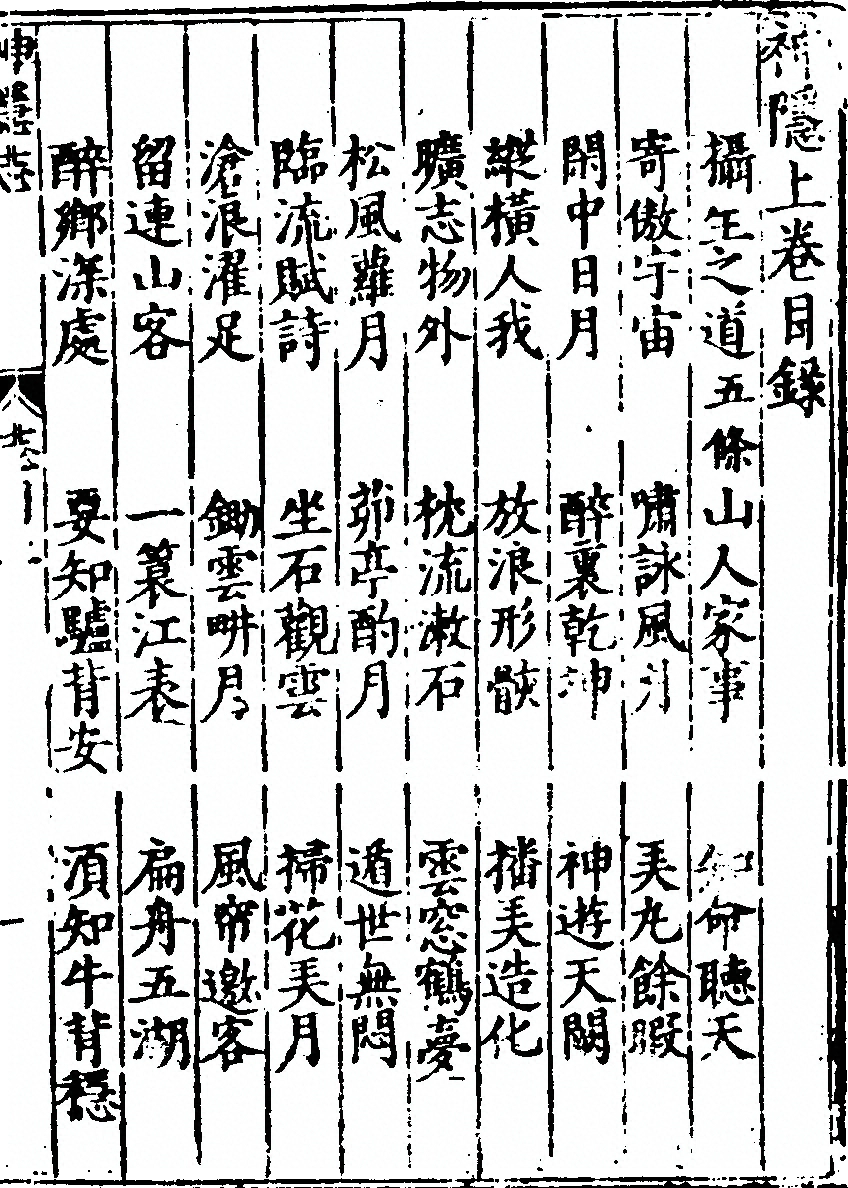 神隱上卷目錄
攝生之道五條 山人家事 知命聽天
寄傲宇宙 嘯詠風月 美丸餘暇
閑中日月 醉裏乾坤 神遊天闕
縱橫人我 放浪形骸 播美造化
曠志物外 枕流漱石 雲窓鶴夢
松風蘿月 茆亭酌月 遁世無悶
臨流賦詩 坐石觀雲 掃花美月
滄浪濯足 鋤雲畊月 風帘邀客
留連山客 一簑江表 扁舟五湖
醉鄉深處 要知驢背安 須知牛背穩